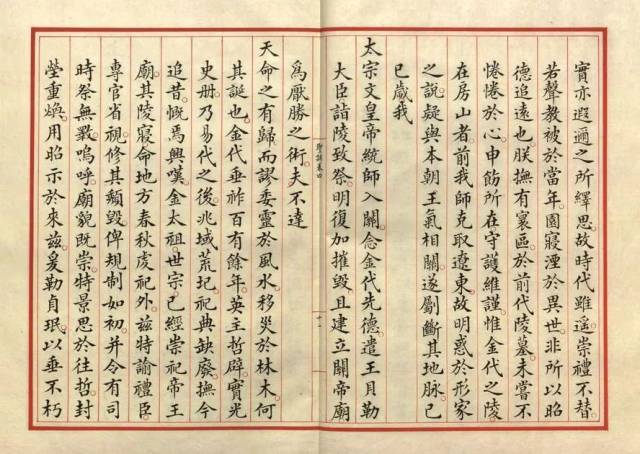 實亦遐邇之所繹思故時代雖遥崇禮不替
若聲教被於當年園寢湮於異世非所以昭
德追遠也朕撫有寰區於前代陵墓未嘗不
惓惓於心申飭所在守護維謹惟金代之陵
在房山者前我師克取遼東故明惑於形家
之說疑與本朝王氣相關遂劚斷其地脉已
巳歲我
太宗文皇帝統師入關念金代先德遣王貝勒
大臣詣陵致祭明復加摧毀且建立關帝廟
為厭勝之術夫不達
天命之有歸而謬委靈於風水移災於林木何
其誕也金代垂祚百有餘年英主哲辟實光
史冊乃易代之後兆域荒圮祀典缺廢撫今
追昔慨焉興嘆金太祖世宗已經崇祀帝王
廟其陵寢命地方春秋虔祀外茲特諭禮臣
專官省視修其頹毀俾規制如初并令有司
時祭無斁嗚呼廟貌既崇特景思於往哲封
塋重煥用昭示於來茲爰勒貞珉以垂不朽